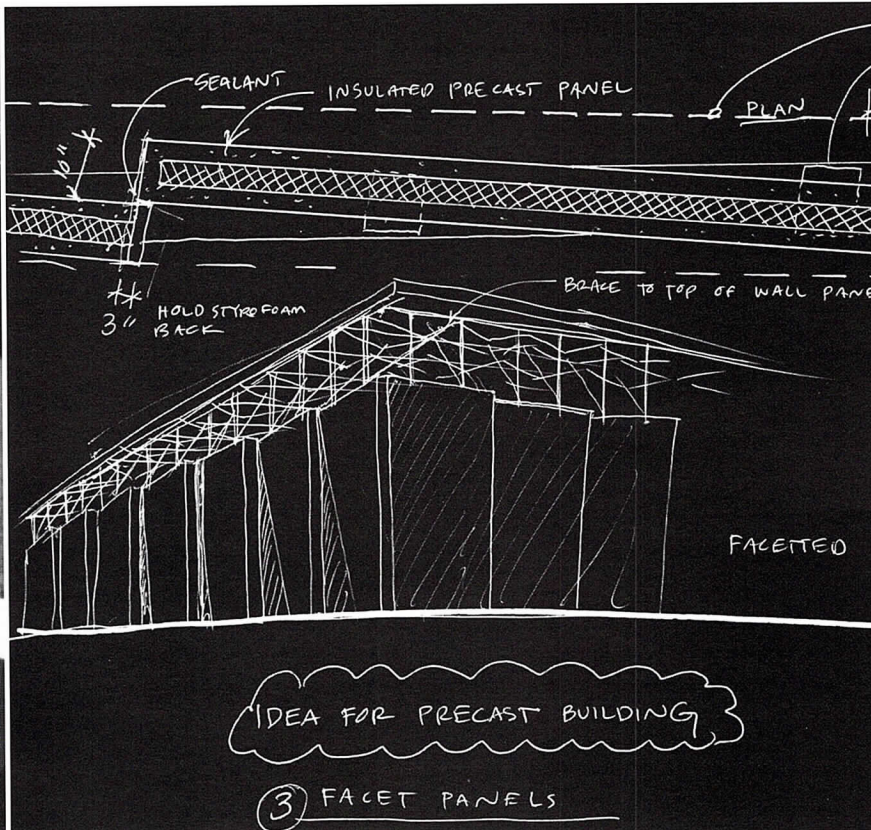 SEALANT
INSULATED PRECAST PANEL
PLAN
10"
3" HOLD STYROFOAM
BACK
BRACE TO TOP OF WALL PANE
FACETTED
IDEA FOR PRECAST BUILDING
3 FACET PANELS